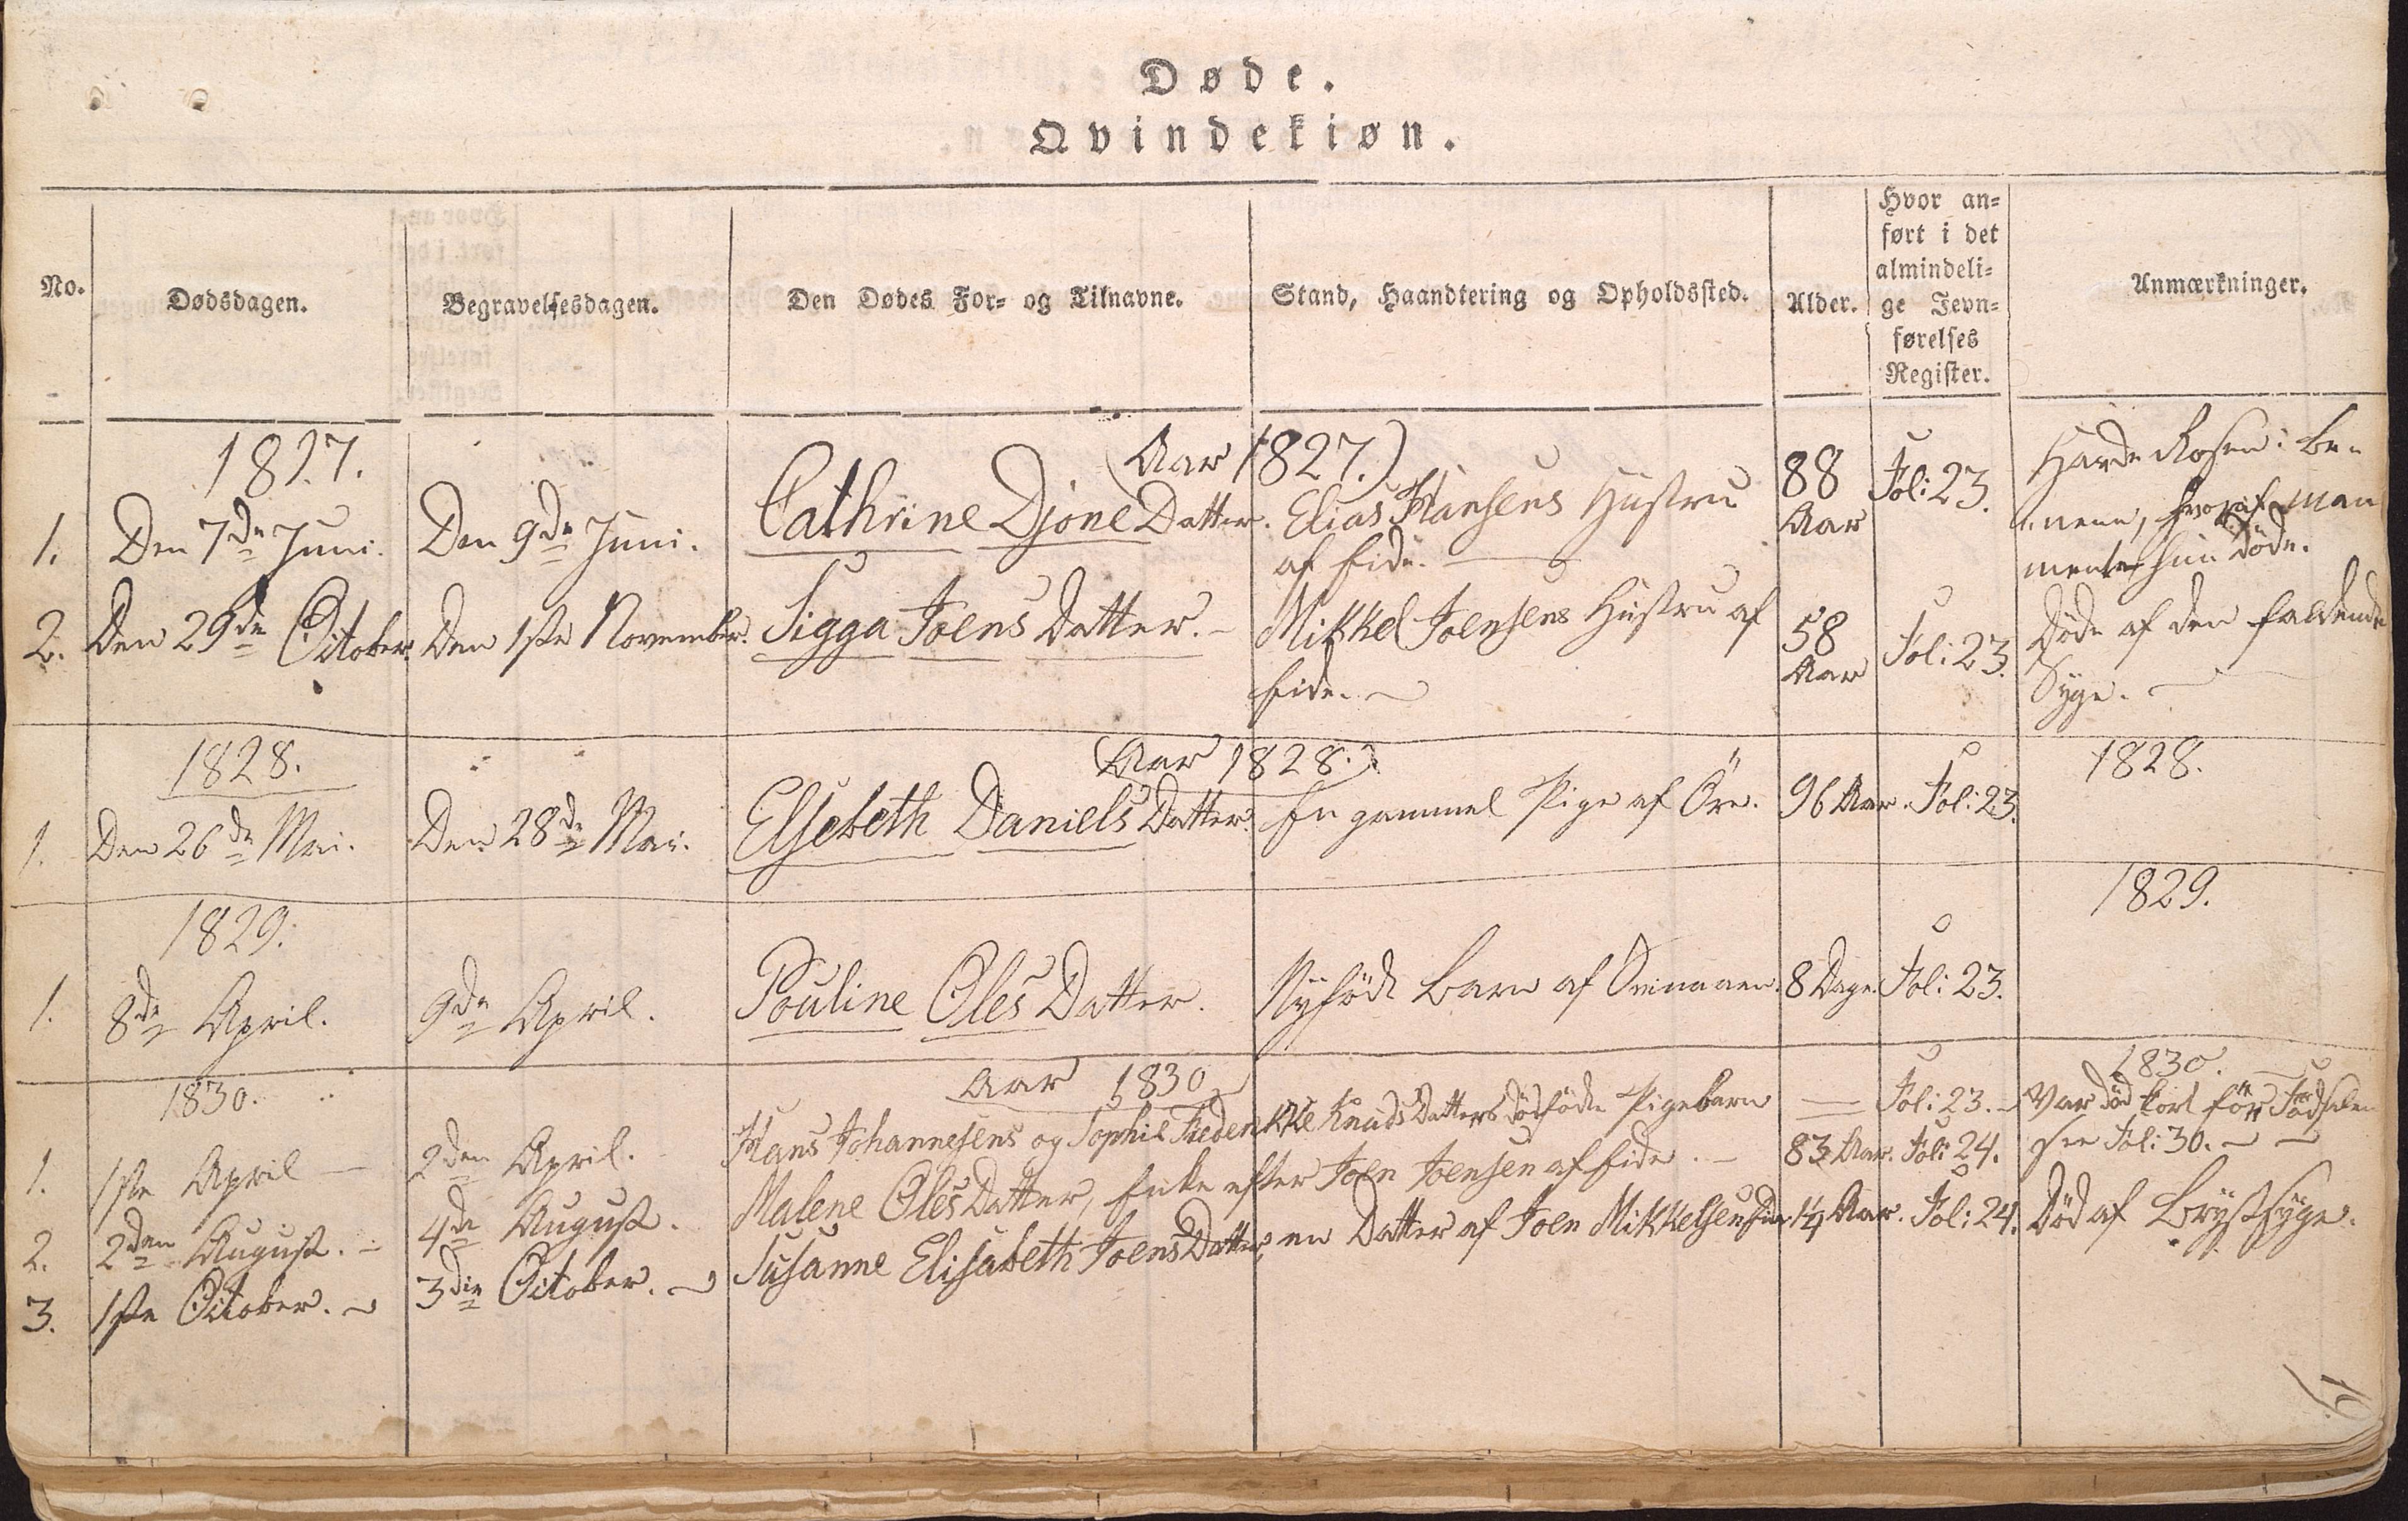 Døde.
Qvindekiøn.
No.
Dødsdagen.
Begravelsesdagen.
Den Dødes For- og Tilnavne.
Stand, Haandtering og Opholdssted.
Alder.
Hvor an-
ført i det
almindeli-
ge Jevn-
førelses
Register.
Anmærkninger.
1827.
(Aar 1827.)
1. Den 7de Juni. Den 9de Juni. Cathrine Djone Datter. Elias Hansens Hustru
af Eide.
88
Aar
Fol: 23.
Havde Rosen i Be-
nene, hvoraf man
mente hun døde.
2. Den 29de October. Den 1ste November. Sigga Joens Datter. Mikkel Joensens Hustru af
Eide.
58
Aar
Fol: 23.
Døde af den faldende
Syge.
1828.
(Aar 1828.)
1828.
1. Den 26de Mai. Den 28de Mai. Elsebeth Daniels Datter. En gammel Pige af Öre. 96 Aar. Fol: 23.
1829.
1829.
1. 8de April. 9de April. Pouline Oles Datter. Nyfödt Barn af Svinaaen. 8 Dage. Fol: 23.
1830.
Aar 1830
1830.
1. 1ste April 2den April. Hans Johannesens og Sophie Frederikke Knuds Datters dødfödte Pigebarn — Fol: 23. Var död kort för Födselen
see Fol: 30.
2. 2den August. 4de August. Malene Oles Datter, Enke efter Joen Joensen af Eide. 83 Aar. Fol: 24.
3. 1ste October. 3die October. Susanne Elisabeth Joens Datter, en Datter af Joen Mikkelsen 14 Aar. Fol: 24. Död af Brystsyge.